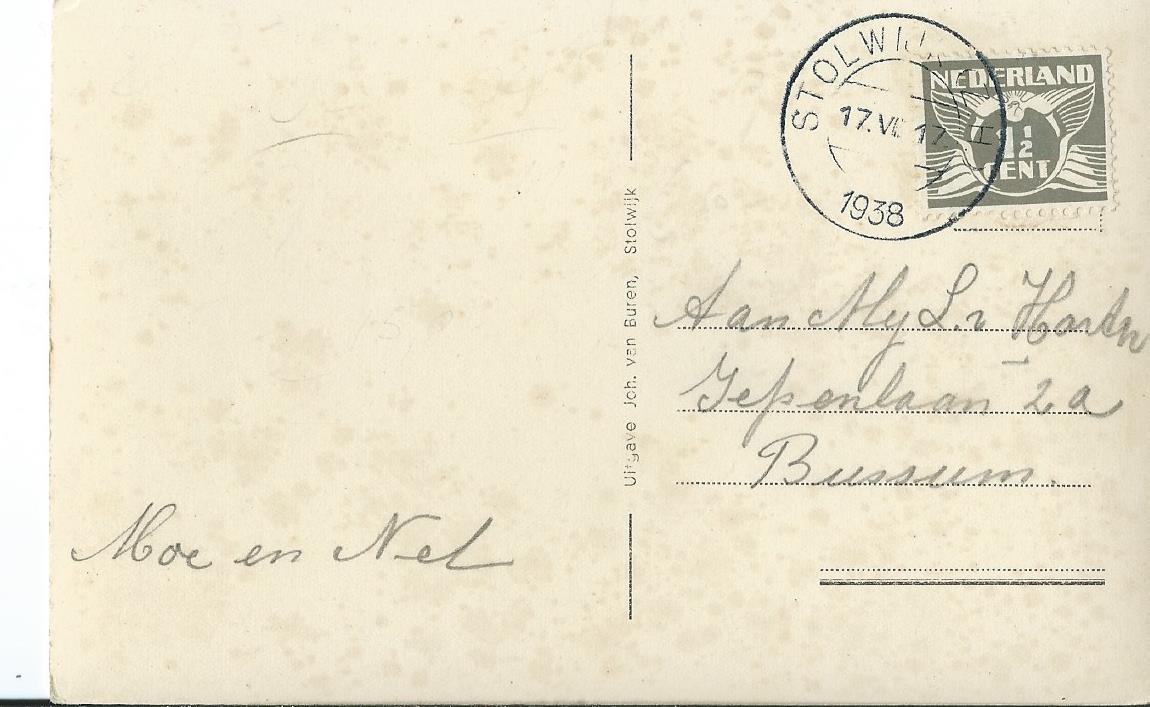 STOLWIJK
17.VII 17.
1938
NEDERLAND
1½
CENT
Uitgave Joh. van Buren, Stolwijk
Aan Mej L. v
2a
Bussum.
Moe en Nel